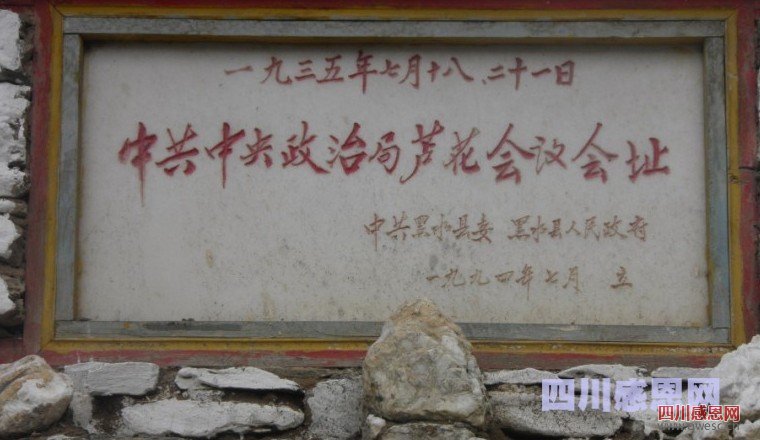 一九三五年七月十八、二十一日
中共中央政治局芦花会议会址
中共黑水县委 黑水县人民政府
一九九四年七月 立
四川感恩网
四川感恩网